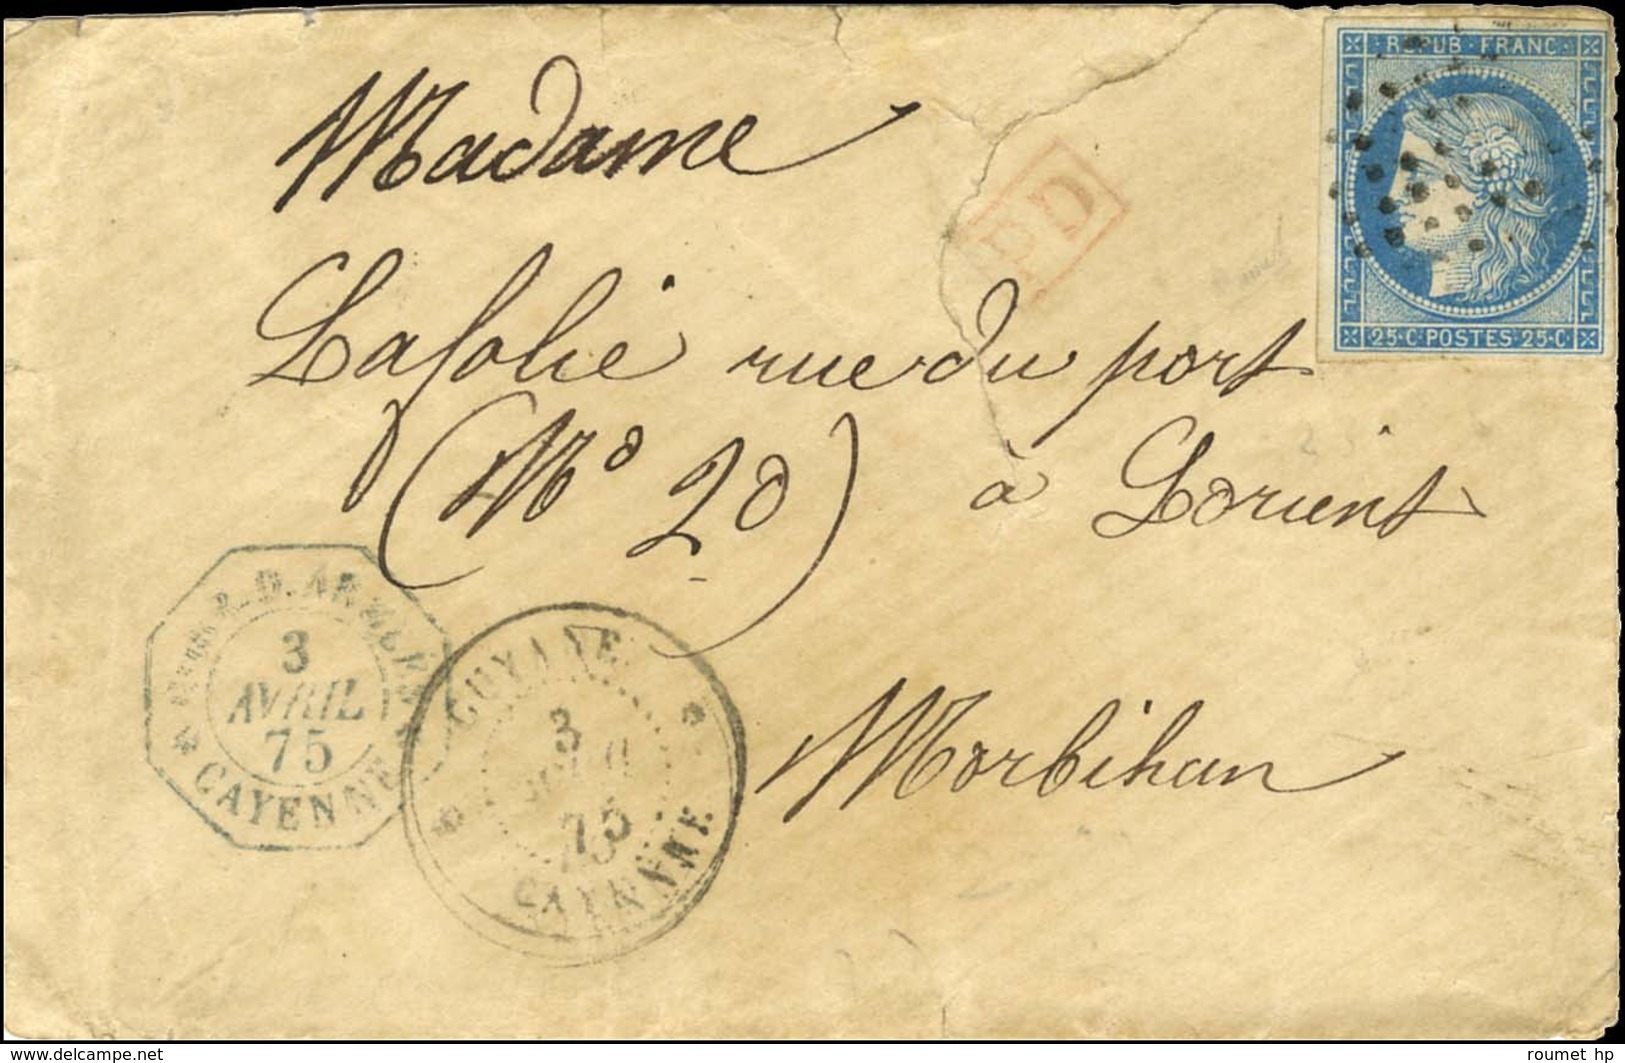 REPUB · FRANC ·
Madame
PD
Lafolie rue du port
25 · C · POSTES · 25 · C
(No 20) à Lorient
3
AVRIL
75
CAYENNE
GUYANE
3
75
CAYENNE
Morbihan
www.delcampe.net
roumet hp